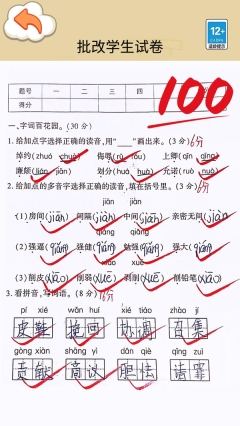 批改学生试卷
12+
题号 一 二 三 四
得分
100
一、字词百花园。(30分)
1.给加点字选择正确的读音,用“____”画出来。(3分)
绰约(zhuó chuò) 侮辱(rǔ rǒu) 上卿(qīn qīng)
廉颇(lián jiān) 划分(huá huà) 允诺(ruò nuò)
2.给加点的多音字选择正确的读音,填在括号里。(3分)
jiān jiàn
(1)房间(jiān) 间隔(jiàn) 中间(jiān) 亲密无间(jiàn)
qiáng qiǎng
(2)强迫( 强健( 勉强( 强大(
xuē xiāo
(3)削皮(xiāo) 削弱(xuē) 剥削(xuē) 削铅笔(xiāo)
3.看拼音,写词语。(8分)
pí xié wǎn huí xié tiáo zhào jí
皮鞋 挽回 协调 召集
gòng xiàn shāng yì dǎn qiè qǐng zuì
贡献 商议 胆怯 请罪